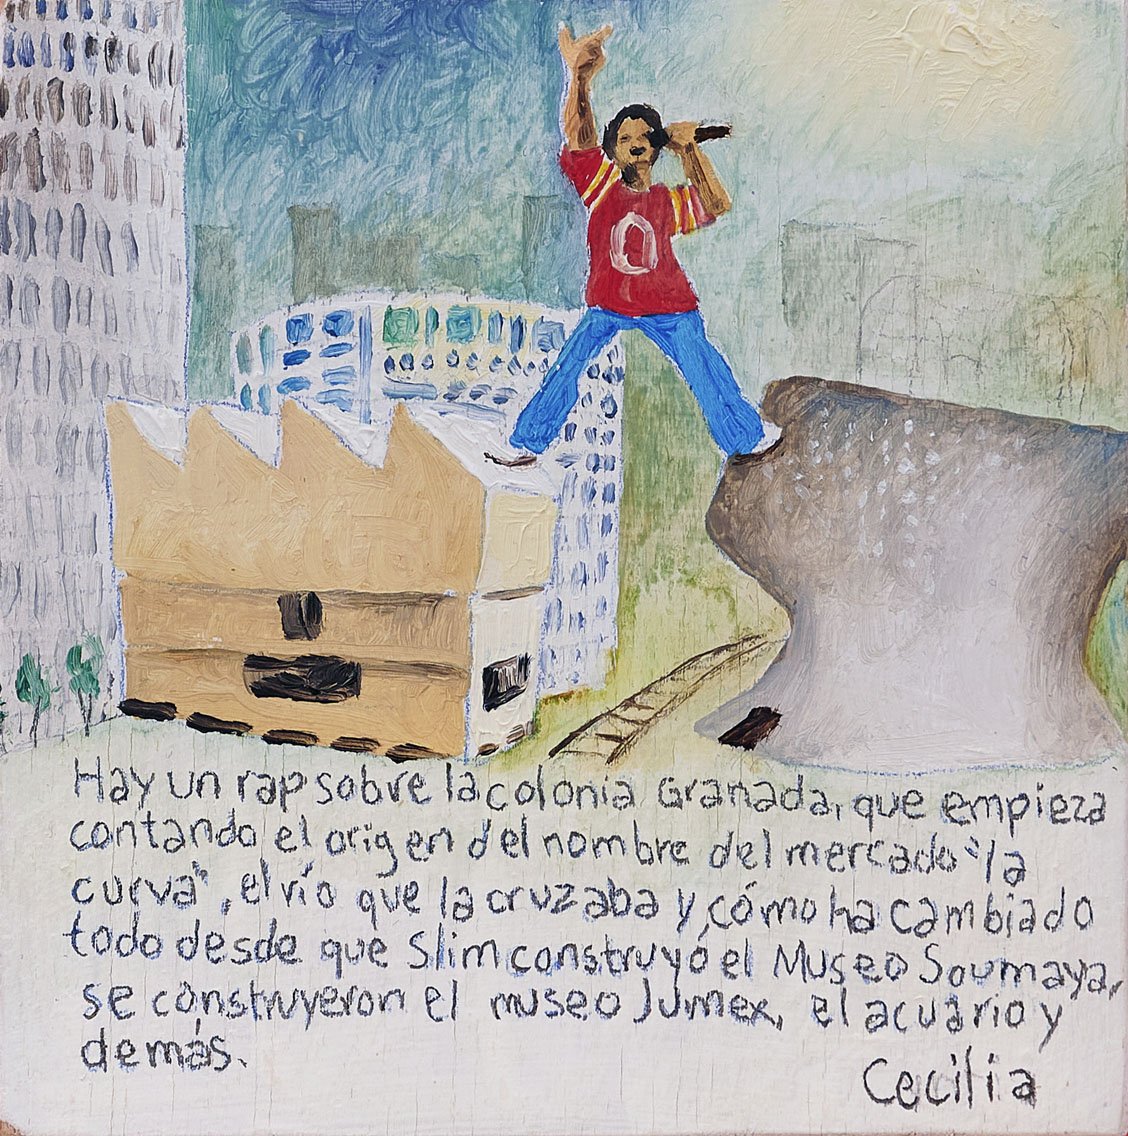 0
Hay un rap sobre la colonia Granada, que empieza
contando el origen del nombre del mercado "la
curva", el río que la cruzaba y cómo ha cambiado
todo desde que Slim construyó el Museo Soumaya,
se construyeron el museo Jumex, el acuario y
demás.
Cecilia